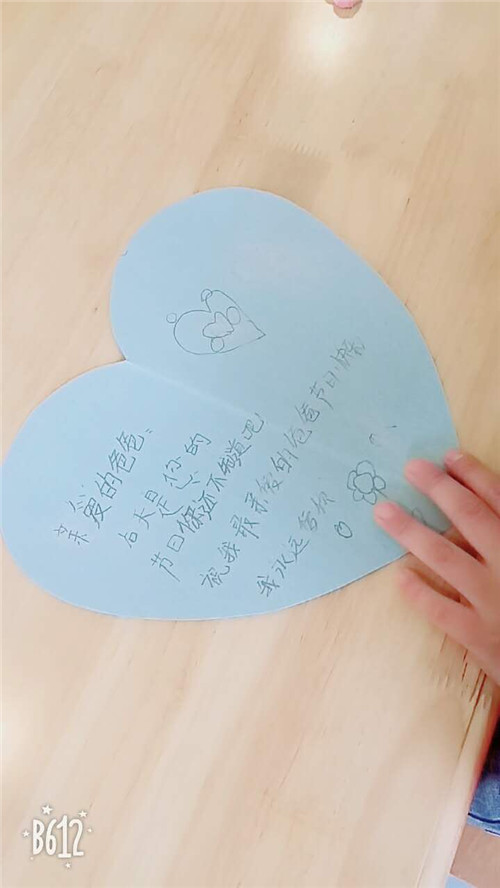 亲爱的爸爸：
后天是你的
节日你还不知道吧！
祝我最亲爱的爸爸节日快乐
我永远爱你
B612